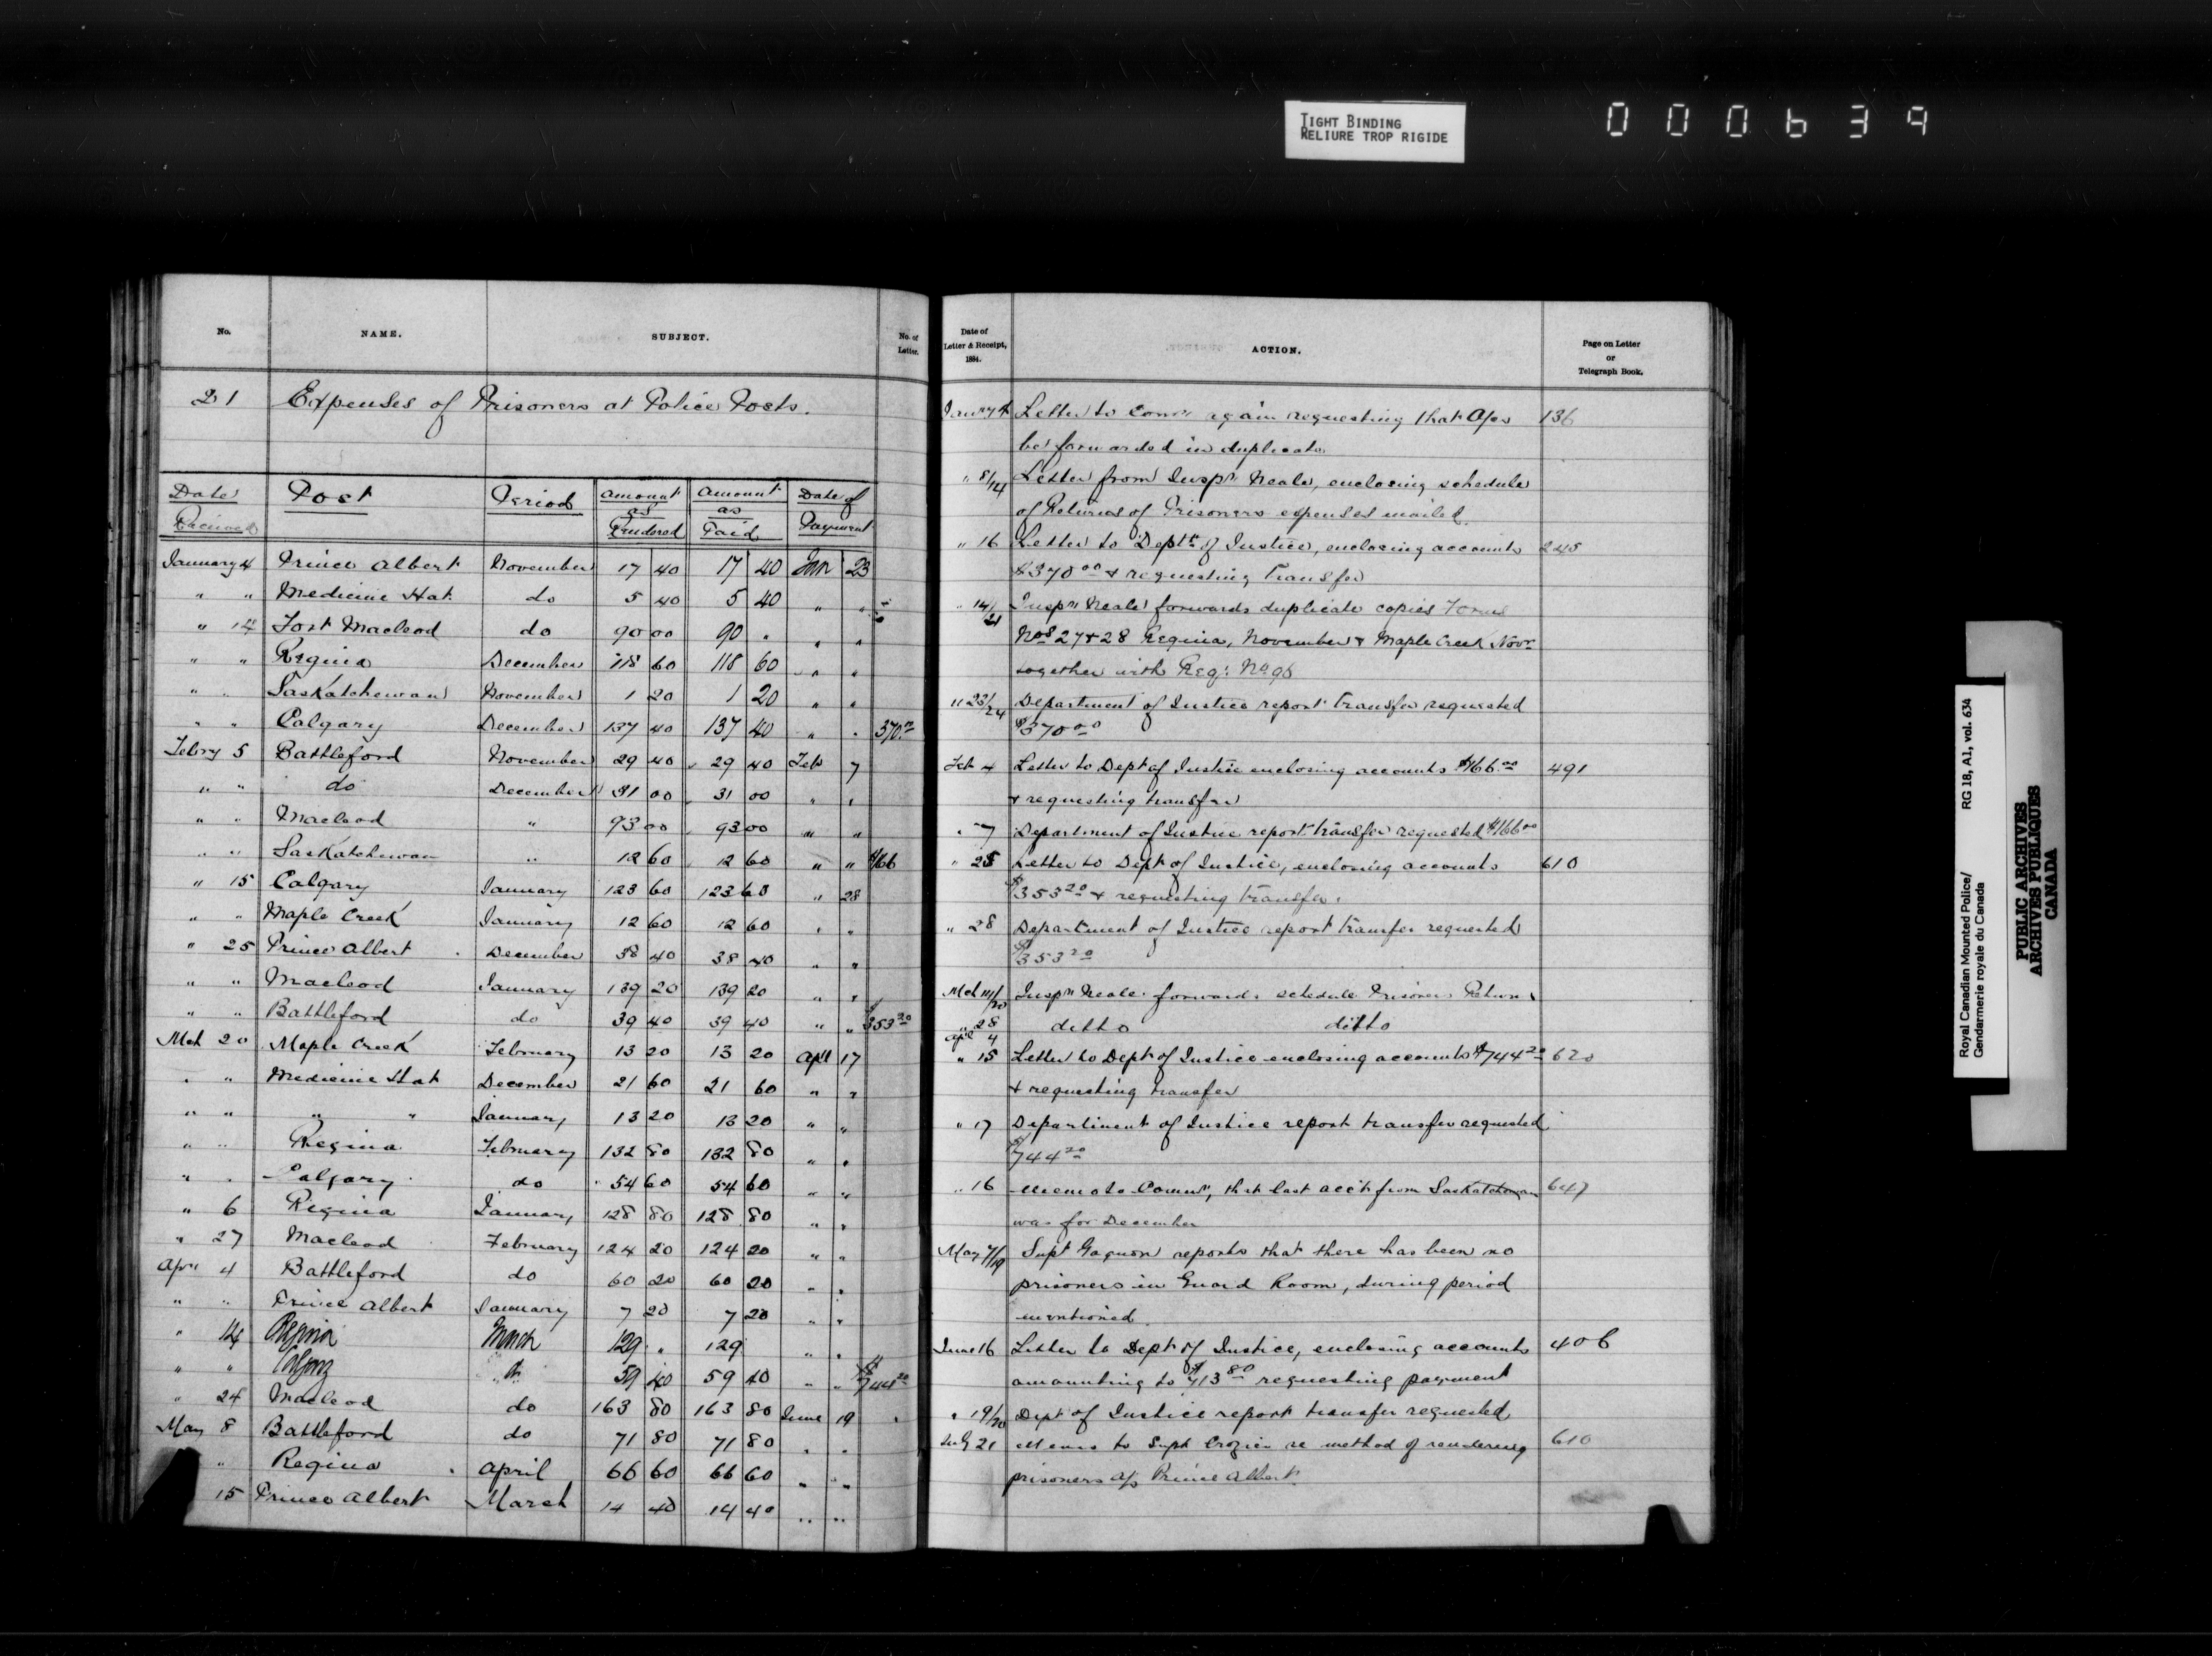 TIGHT BINDING
RELIURE TROP RIGIDE
000639
No. NAME. SUBJECT. No. of Letter.
21 Expenses of Prisoners at Police Posts.
Date Received Post Period Amount as Rendered Amount as Paid Date of Payment
January 4 Prince Albert November 17 40 17 40 Jan 23
" " Medicine Hat do 5 40 5 40 " "
" 14 Fort Macleod do 90 00 90 " " "
" " Regina December 118 60 118 60 " "
" " Saskatchewan November 1 20 1 20 " "
" " Calgary December 137 40 137 40 " " 370.00
Febry 5 Battleford November 29 40 29 40 Feb 7
" " do December 31 00 31 00 " "
" " Macleod " 93 00 93 00 " "
" " Saskatchewan " 12 60 12 60 " " $166
" 15 Calgary January 123 60 123 60 " 28
" " Maple Creek January 12 60 12 60 " "
" 25 Prince Albert December 38 40 38 40 " "
" " Macleod January 139 20 139 20 " "
" " Battleford do 39 40 39 40 " " $353 20
Mch 20 Maple Creek February 13 20 13 20 Apll 17
" " Medicine Hat December 21 60 21 60 " "
" " " " January 13 20 13 20 " "
" " Regina February 132 80 132 80 " "
" " Calgary do 54 60 54 60 " "
" 6 Regina January 128 80 128 80 " "
" 27 Macleod February 124 20 124 20 " "
Apll 4 Battleford do 60 20 60 20 " "
" " Prince Albert January 7 20 7 20 " "
" 14 Regina March 129 " 129 " "
" " Calgary do 59 40 59 40 " " $744 20
" 24 Macleod do 163 80 163 80 June 19
May 8 Battleford do 71 80 71 80 " "
" Regina April 66 60 66 60 " "
15 Prince Albert March 14 40 14 40 " "
Date of Letter & Receipt, 1884. ACTION. Page on Letter or Telegraph Book.
Janry 4 Letter to Comr again requesting that A/cs 136
be forwarded in duplicate
" 8/14 Letter from Inspr Neale, enclosing schedule
of Returns of Prisoners expenses mailed.
" 16 Letter to Deptt of Justice, enclosing accounts 245
$370 00 & requesting Transfer
" 14/21 Inspr Neale forwards duplicate copies Forms
Nos 27 & 28 Regina, November & Maple Creek Novr
together with Reg: No 90
" 23/24 Department of Justice report transfer requested
$370 00
Feb 4 Letter to Dept of Justice enclosing accounts $166.00 491
& requesting transfer
" 7 Department of Justice report transfer requested $166 00
" 25 Letter to Dept of Justice, enclosing accounts 610
$353 20 & requesting transfer.
" 28 Department of Justice report transfer requested
$353 20
Mch 11/20 Inspr Neale forwards schedule Prisoners Returns
" 28 Apl 4 ditto ditto
" 15 Letter to Dept of Justice enclosing accounts $744 20 620
& requesting transfer
" 17 Department of Justice report transfer requested
$744 20
" 16 Memo to Commr, that last acct from Saskatchewan 647
was for December
May 7/19 Supt Gagnon reports that there has been no
prisoners in Guard Room, during period
mentioned.
June 16 Letter to Dept of Justice, enclosing accounts 406
amounting to $713 80 requesting payment
" 19/20 Dept of Justice report transfer requested
July 21 Memo to Supt Crozier re method of rendering 610
prisoners a/c Prince Albert.
Royal Canadian Mounted Police/ RG 18, A1, vol. 634
Gendarmerie royale du Canada
PUBLIC ARCHIVES
ARCHIVES PUBLIQUES
CANADA